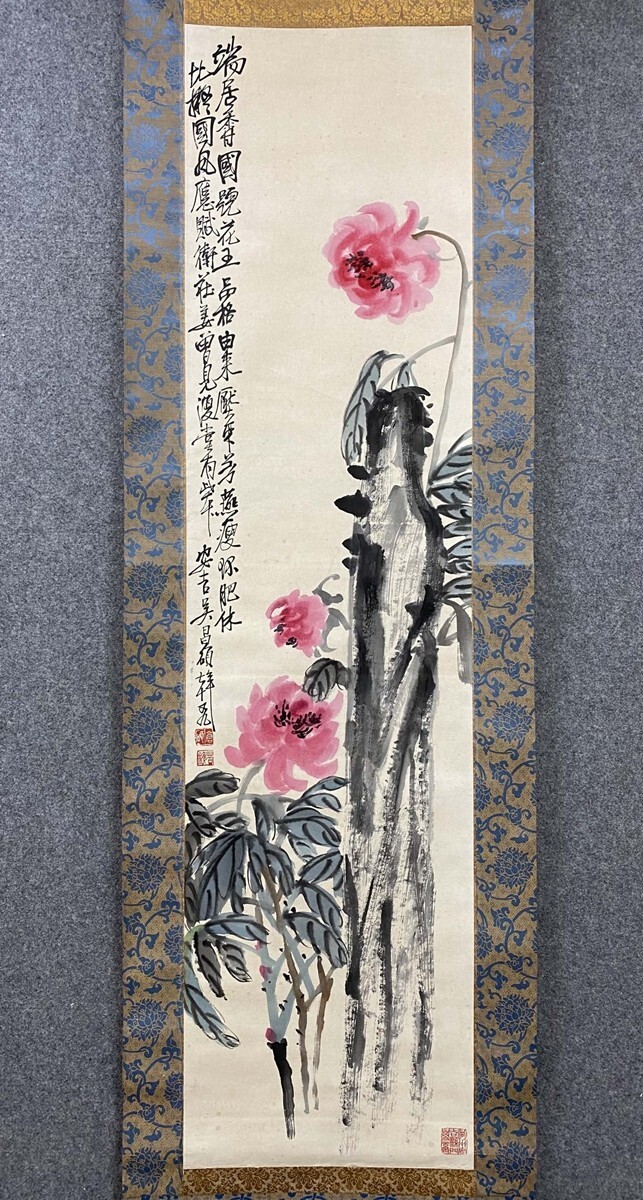 端居香國號花王品格由來壓眾芳燕瘦環肥休
比擬國風應賦衛莊姜曾見復堂有此本安吉吳昌碩年